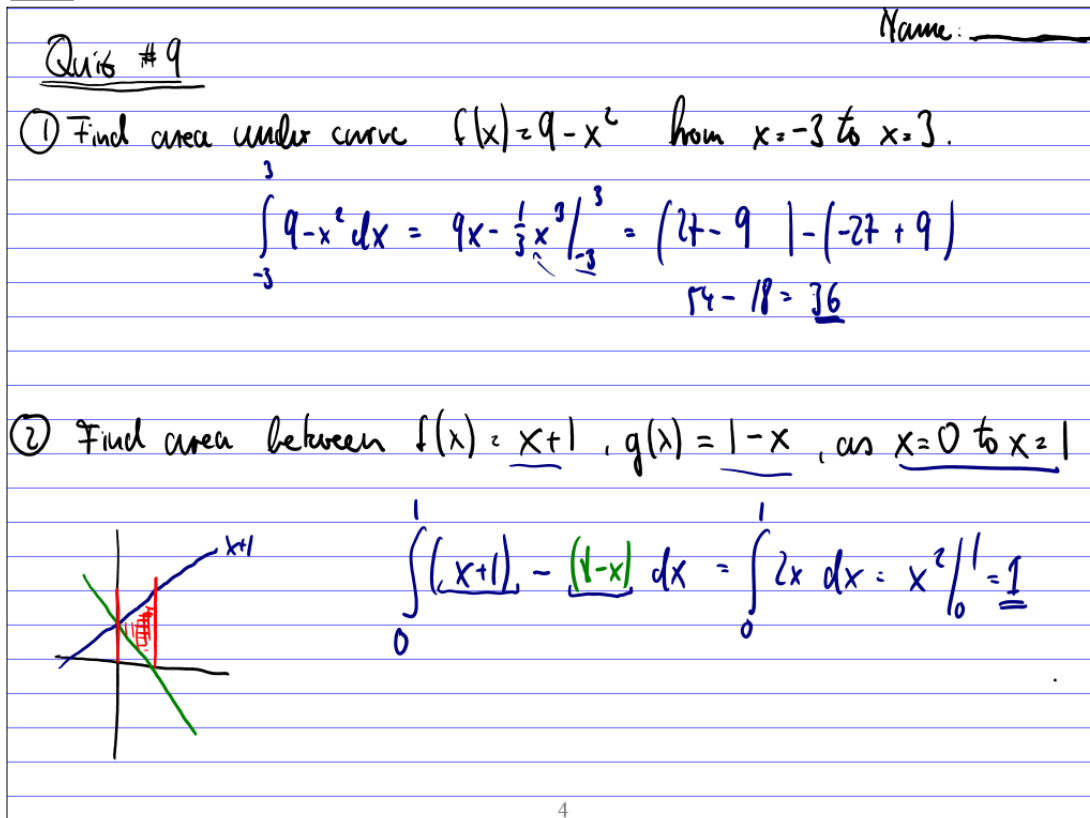 Name:
Quiz #9
① Find area under curve f(x) = 9 - x² from x = -3 to x = 3.
∫₋₃³ 9 - x² dx = 9x - 1/3 x³ |₋₃³ = (27 - 9) - (-27 + 9)
54 - 18 = 36
② Find area between f(x) = x+1, g(x) = 1-x, as x=0 to x=1
x+1
∫₀¹ (x+1) - (1-x) dx = ∫₀¹ 2x dx = x² |₀¹ = 1
4